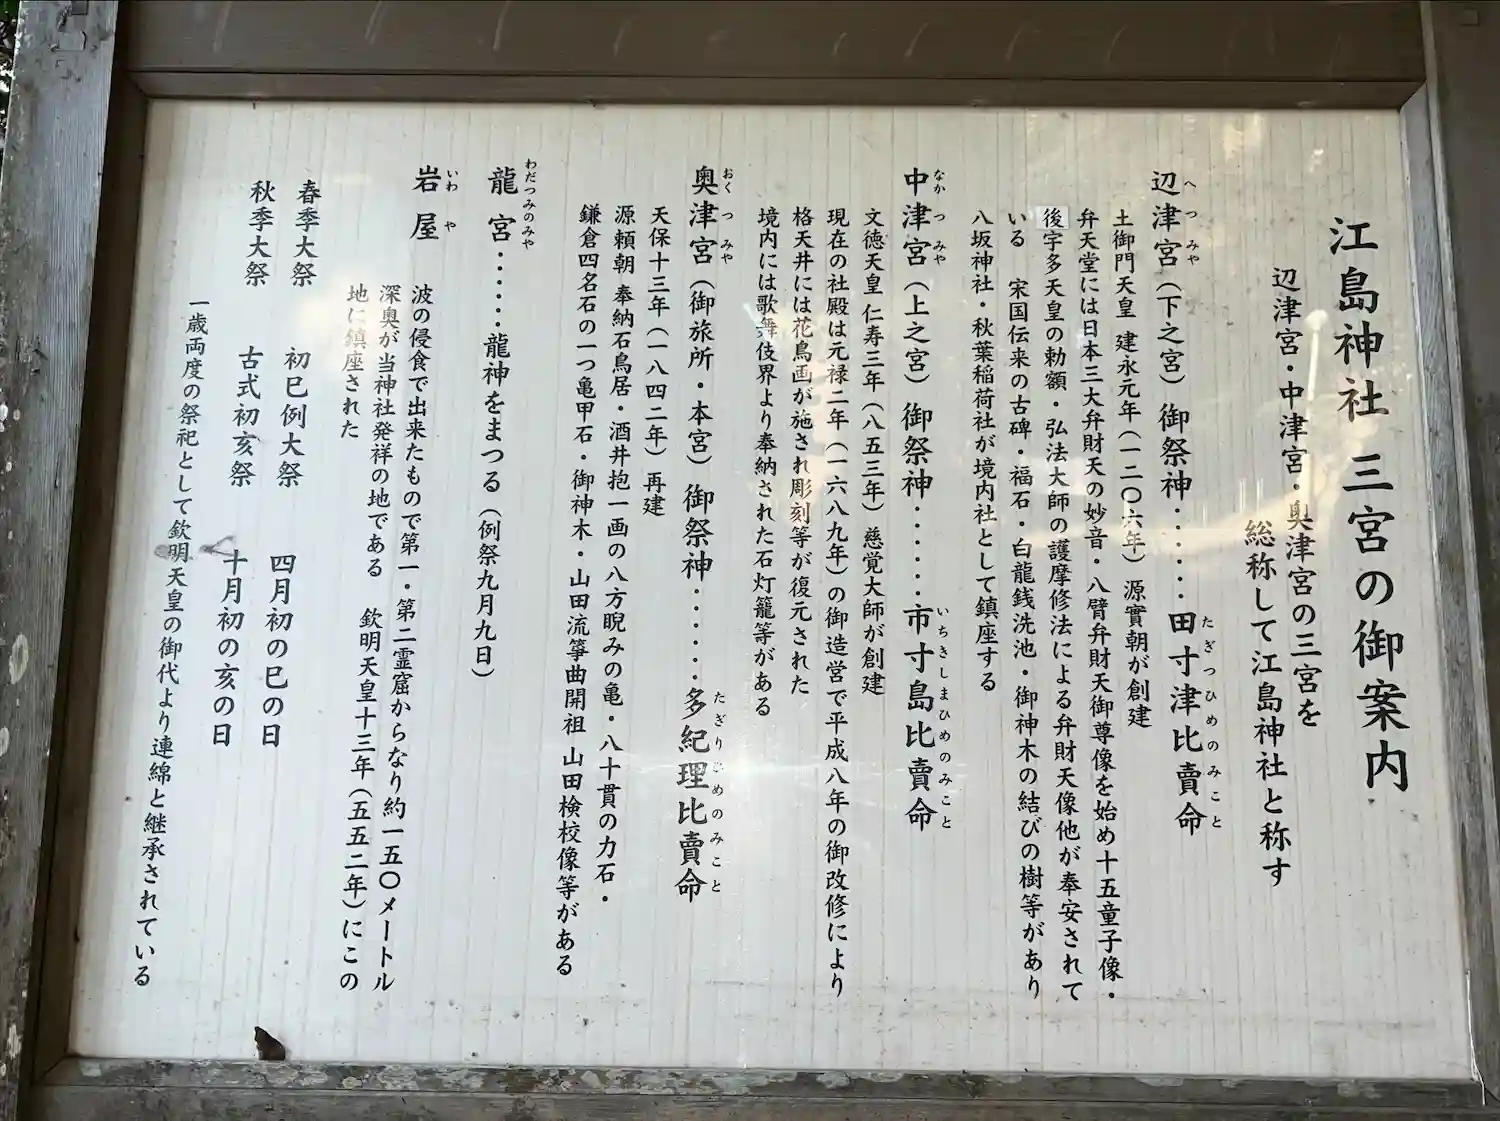 江島神社 三宮の御案内
辺津宮・中津宮・奥津宮の三宮を
総称して江島神社と称す
辺津宮(下之宮)御祭神・・・・・・田寸津比賣命
へつみや
たぎつひめのみこと
土御門天皇 建永元年(一二〇六年)源實朝が創建
弁天堂には日本三大弁財天の妙音・八臂弁財天御尊像を始め十五童子像・
後宇多天皇の勅額・弘法大師の護摩修法による弁財天像他が奉安されて
いる 宋国伝来の古碑・福石・白龍銭洗池・御神木の結びの樹等があり
八坂神社・秋葉稲荷社が境内社として鎮座する
中津宮(上之宮)御祭神・・・・・・市寸島比賣命
なかつみや
いちきしまひめのみこと
文徳天皇 仁寿三年(八五三年)慈覚大師が創建
現在の社殿は元禄二年(一六八九年)の御造営で平成八年の御改修により
格天井には花鳥画が施され彫刻等が復元された
境内には歌舞伎界より奉納された石灯籠等がある
奥津宮(御旅所・本宮)御祭神・・・・・・多紀理比賣命
おくつみや
たぎりひめのみこと
天保十三年(一八四二年)再建
源頼朝 奉納石鳥居・酒井抱一画の八方睨みの亀・八十貫の力石・
鎌倉四名石の一つ亀甲石・御神木・山田流箏曲開祖 山田検校像等がある
龍宮・・・・・・龍神をまつる(例祭九月九日)
わだつみのみや
岩屋 波の侵食で出来たもので第一・第二霊窟からなり約一五〇メートル
いわや
深奥が当神社発祥の地である 欽明天皇十三年(五五二年)にこの
地に鎮座された
春季大祭 初巳例大祭 四月初の巳の日
秋季大祭 古式初亥祭 十月初の亥の日
一歳両度の祭祀として欽明天皇の御代より連綿と継承されている